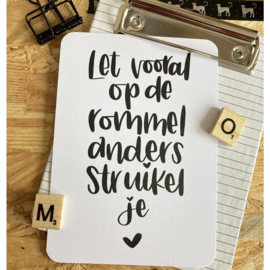 Let vooral
op de
rommel
anders
struikel
je
O
M